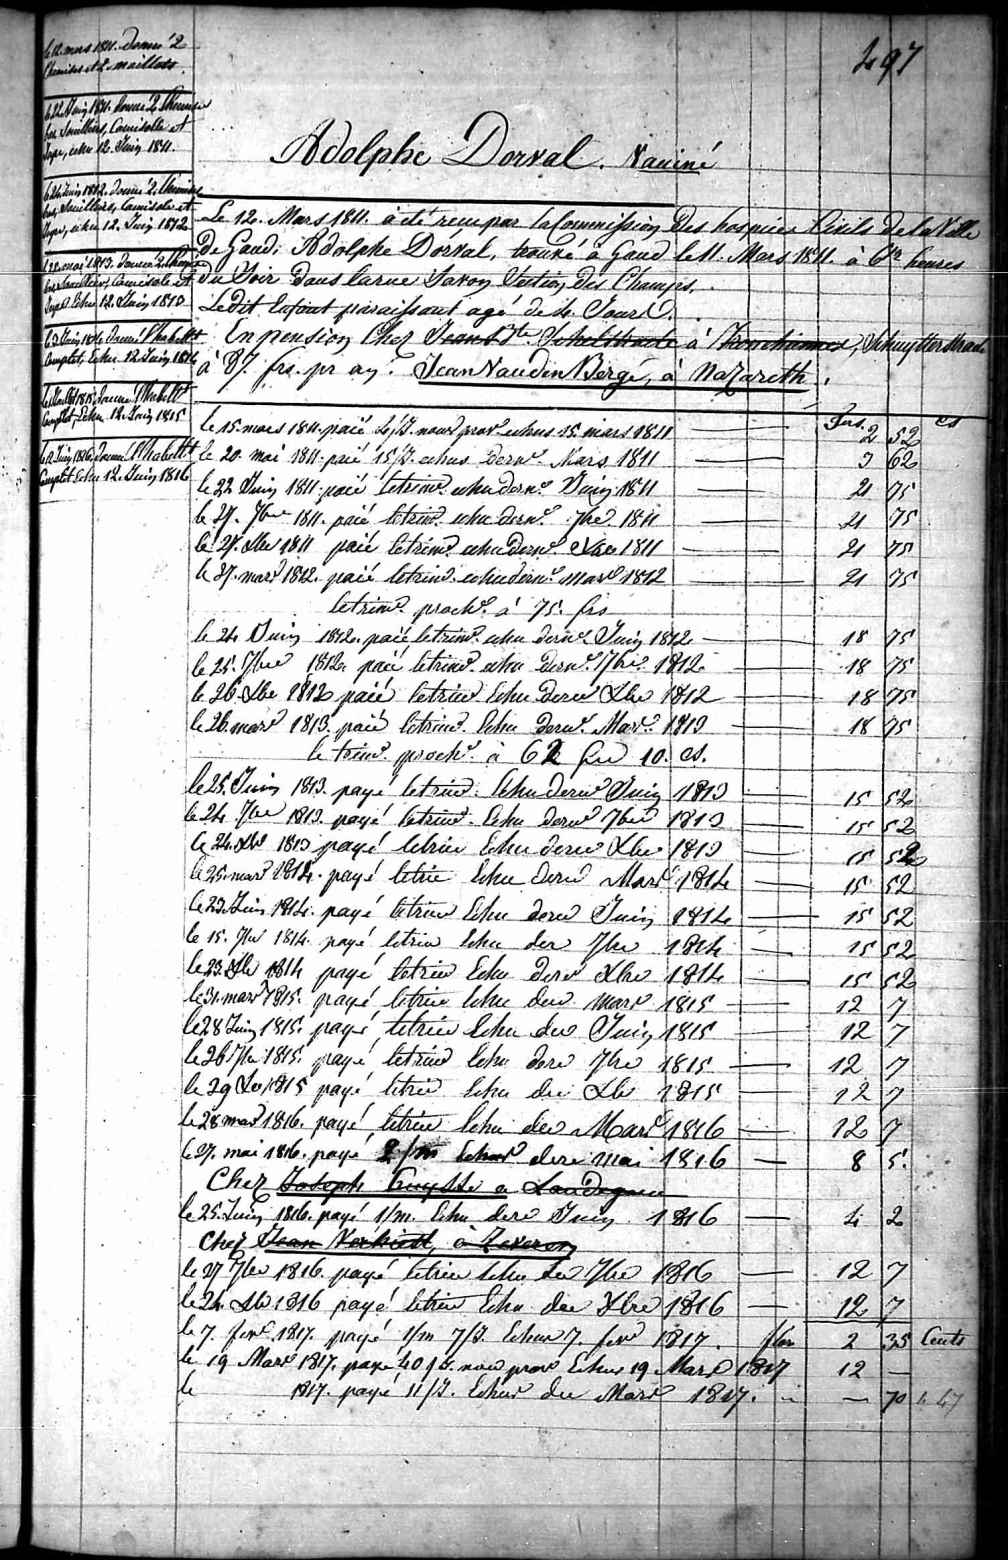 497
le 12. mars 1811. donné 2
Chemises et 2 maillots.
le 22 Juin 1811. donné 2 Chemises
bas, Souilliers, Camisolle et
Jupe, echu 12. Juin 1811.
le 24 Juin 1812. donné 2 Chemises
bas, Souilliers, Camisole et
Jupe, echu 12. Juin 1812
donné 2 Chemises
Camisolle et
Jupe Echu 12. Juin 1813
donné l'habillt
Complet, Echu 12 Juin 1814
donné l'habillt
Complet, Echu 12. Juin 1815
donné l'habillt
Complet Echu 12. Juin 1816
Adolphe Dorval. Vaciné
Le 12. Mars 1811. à été recu par la Commission des hospices Civils de la Ville
de Gand; Adolphe Dorval, trouvé à Gand le 11. Mars 1811. à 6 1/2 heures
du Soir dans la rue Savon Section des Champs.
Ledit Enfant paraissant agé de 4 Jours.
En pension Chez Jean Bte Schelstraete à Tronchiennes, Schuytterstraat
à 87. frs. pr an. Jean Vanden Berge, à Nazareth.
Frs. cs
le 15 mars 1811. paié 4/J. nour prov. echus 15 mars 1811 2 52
le 20. mai 1811. paié 15/J. echus dern. Mars 1811 3 62
le 22 Juin 1811. paié le trim. echu dern. Juin 1811 21 75
le 27. 7bre 1811. paié le trim. echu dern. 7bre 1811 21 75
le 27. Xbre 1811 paié le trim. echu dern. Xbre 1811 21 75
le 27. mars 1812. paié le trim. echu dern. Mars 1812 21 75
le trim. proch. à 75. frs
le 24 Juin 1812. paié, le trim. echu dern. Juin 1812 18 75
le 25. 7bre 1812. paié le trim. echu dern. 7bre 1812 18 75
le 26 Xbre 1812 paié le trim Echu dern Xbre 1812 18 75
le 26. mars 1813. paié le trim. Echu dern. Mars 1813 18 75
le trim. proch. à 62 frs 10. cs.
le 25. Juin 1813. payé le trim. Echu dern Juin 1813 15 52
le 24 7bre 1813. payé le trim. Echu dern 7bre 1813 15 52
le 24. Xbre 1813 payé le trim Echu dern Xbre 1813 15 52
le 25. mars 1814. payé le trim Echu dern Mars 1814 15 52
le 23. Juin 1814. payé le trim Echu dern Juin 1814 15 52
le 15. 7bre 1814. payé le trim Echu der 7bre 1814 15 52
le 23. Xbre 1814 payé le trim Echu dern Xbre 1814 15 52
le 31. mars 1815. payé le trim Echu der mars 1815 12 7
le 28 Juin 1815. payé le trim Echu der Juin 1815 12 7
le 26 7bre 1815. payé le trim Echu dern 7bre 1815 12 7
le 29 Xbre 1815 payé le trim Echu der Xbre 1815 12 7
le 28 mars 1816. payé le trim Echu der Mars 1816 12 7
le 27. mai 1816. payé 2/m Echus dern mai 1816 8 5.
Chez Joseph à
le 25. Juin 1816. payé 1/m. Echu dern Juin 1816 4 2
Chez Jean à Zeveren
le 27 7bre 1816. payé le trim Echu der 7bre 1816 12 7
le 24. Xbre 1816 payé le trim Echu der Xbre 1816 12 7
le 7. fevr. 1817. payé 1/m 7/J. Echus 7. fevr 1817. flor 2 35 Cents
le 19 Mars 1817. payé 40/J. nour prov Echus 19. Mars 1817 12 —
le 1817. payé 11/J. Echus der Mars 1817. — 70 47